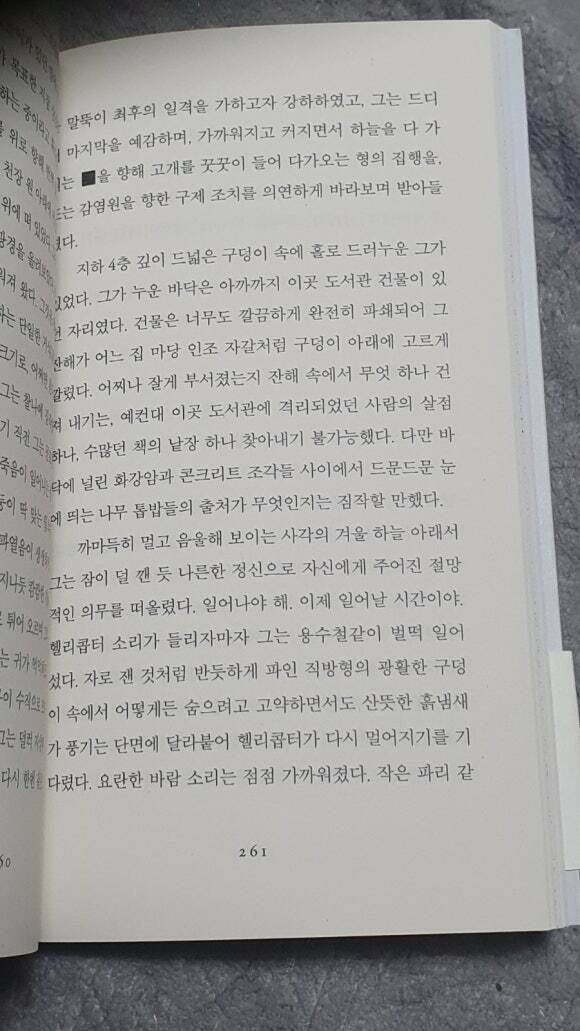 목표한
하는 중이라고
위로 향해
천장 원
위에 떠 있었다.
광경을
워져 왔다.
하는 단일한
크기로,
그는 찰나에
기 직전
죽음이
등이 딱 맞는
파열음이
지나듯 캄캄한
튀어 오르며
는 귀가
이 수직으로
그는 덜떡
다시 한번
60
말뚝이 최후의 일격을 가하고자 강하하였고, 그는 드디
마지막을 예감하며, 가까워지고 커지면서 하늘을 다 가
는 ■을 향해 고개를 꼿꼿이 들어 다가오는 형의 집행을,
는 감염원을 향한 구제 조치를 의연하게 바라보며 받아들
였다.
지하 4층 깊이 드넓은 구덩이 속에 홀로 드러누운 그가
있었다. 그가 누운 바닥은 아까까지 이곳 도서관 건물이 있
던 자리였다. 건물은 너무도 깔끔하게 완전히 파쇄되어 그
잔해가 어느 집 마당 인조 자갈처럼 구덩이 아래에 고르게
깔렸다. 어찌나 잘게 부서졌는지 잔해 속에서 무엇 하나 건
져 내기는, 예컨대 이곳 도서관에 격리되었던 사람의 살점
하나, 수많던 책의 낱장 하나 찾아내기 불가능했다. 다만 바
닥에 널린 화강암과 콘크리트 조각들 사이에서 드문드문 눈
에 띄는 나무 톱밥들의 출처가 무엇인지는 짐작할 만했다.
까마득히 멀고 음울해 보이는 사각의 겨울 하늘 아래서
그는 잠이 덜 깬 듯 나른한 정신으로 자신에게 주어진 절망
적인 의무를 떠올렸다. 일어나야 해. 이제 일어날 시간이야.
헬리콥터 소리가 들리자마자 그는 용수철같이 벌떡 일어
섰다. 자로 잰 것처럼 반듯하게 파인 직방형의 광활한 구덩
이 속에서 어떻게든 숨으려고 고약하면서도 산뜻한 흙냄새
가 풍기는 단면에 달라붙어 헬리콥터가 다시 멀어지기를 기
다렸다. 요란한 바람 소리는 점점 가까워졌다. 작은 파리 같
261